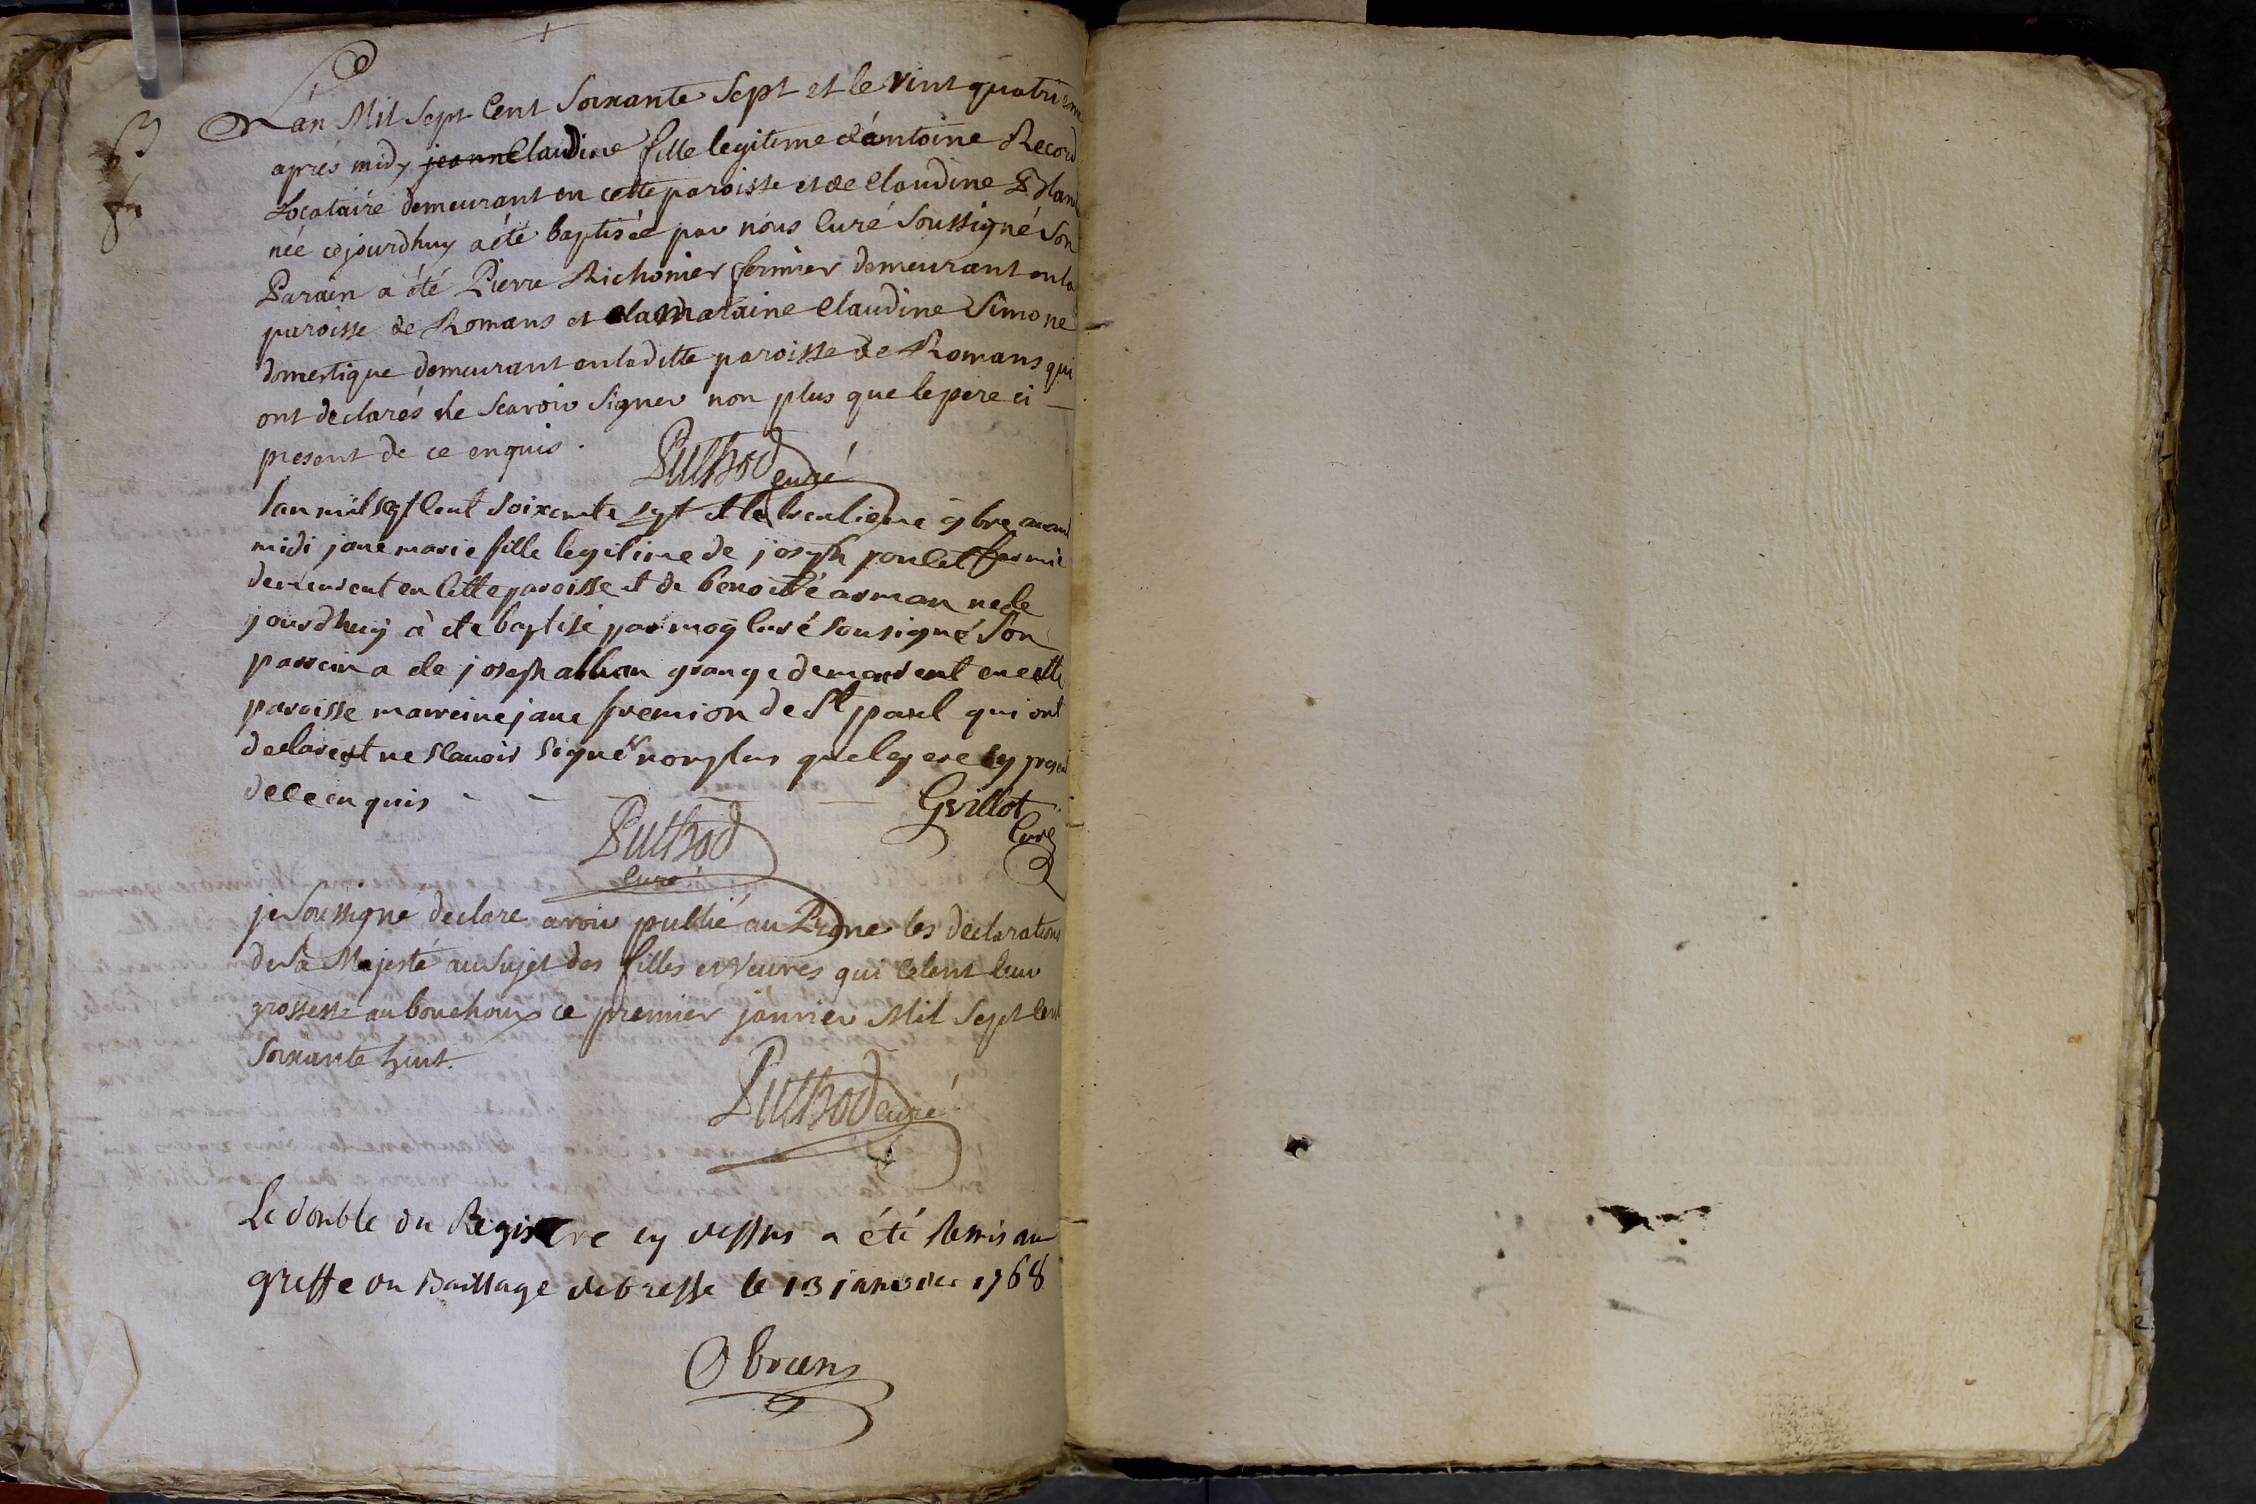 L'an Mil Sept Cent Soixante Sept et le vint quatriem
après midy jeanne Claudine fille legitime d'antoine Record
Locataire demeurant en cette paroisse et de Claudine
née cejourdhuy a été baptisée par nous Curé Soussigné Son
Parain a été Pierre Richonier fermier demeurant en la
paroisse de Romans et la Maraine Claudine Simone
domestique demeurant en laditte paroisse de Romans qui
ont declarés ne Scavoir Signer non plus que le pere ci
present de ce enquis.
Puthod curé
lan mil sept Cent Soixente sept et le trentieme bre avant
midi jane marie fille legitime de joseph poulet fermie
demeurent en cette paroisse et de benoite arman ne ce
jourdhuy à ete baptisé par moy curé Sousigné Son
parrein a ete joseph alban grange demeurent en cette
paroisse marreine jane fremion de St paul qui ont
declarest ne scavoir signér non plus que le pere cy presen
de ce enquis
Gvillot
Curé
Puthod
curé
je Soussigne declare avoir publié au Prone les declarations
de Sa Majesté au Sujet des filles et Veuves qui celent leur
grossesse au bouchoux ce premier janvier Mil Sept Cent
Soixante huit.
Puthod curé
Le double du Registre cy dessus a été Remis au
greffe du Baillage de bresse le 13 janvier 1768
Obrun